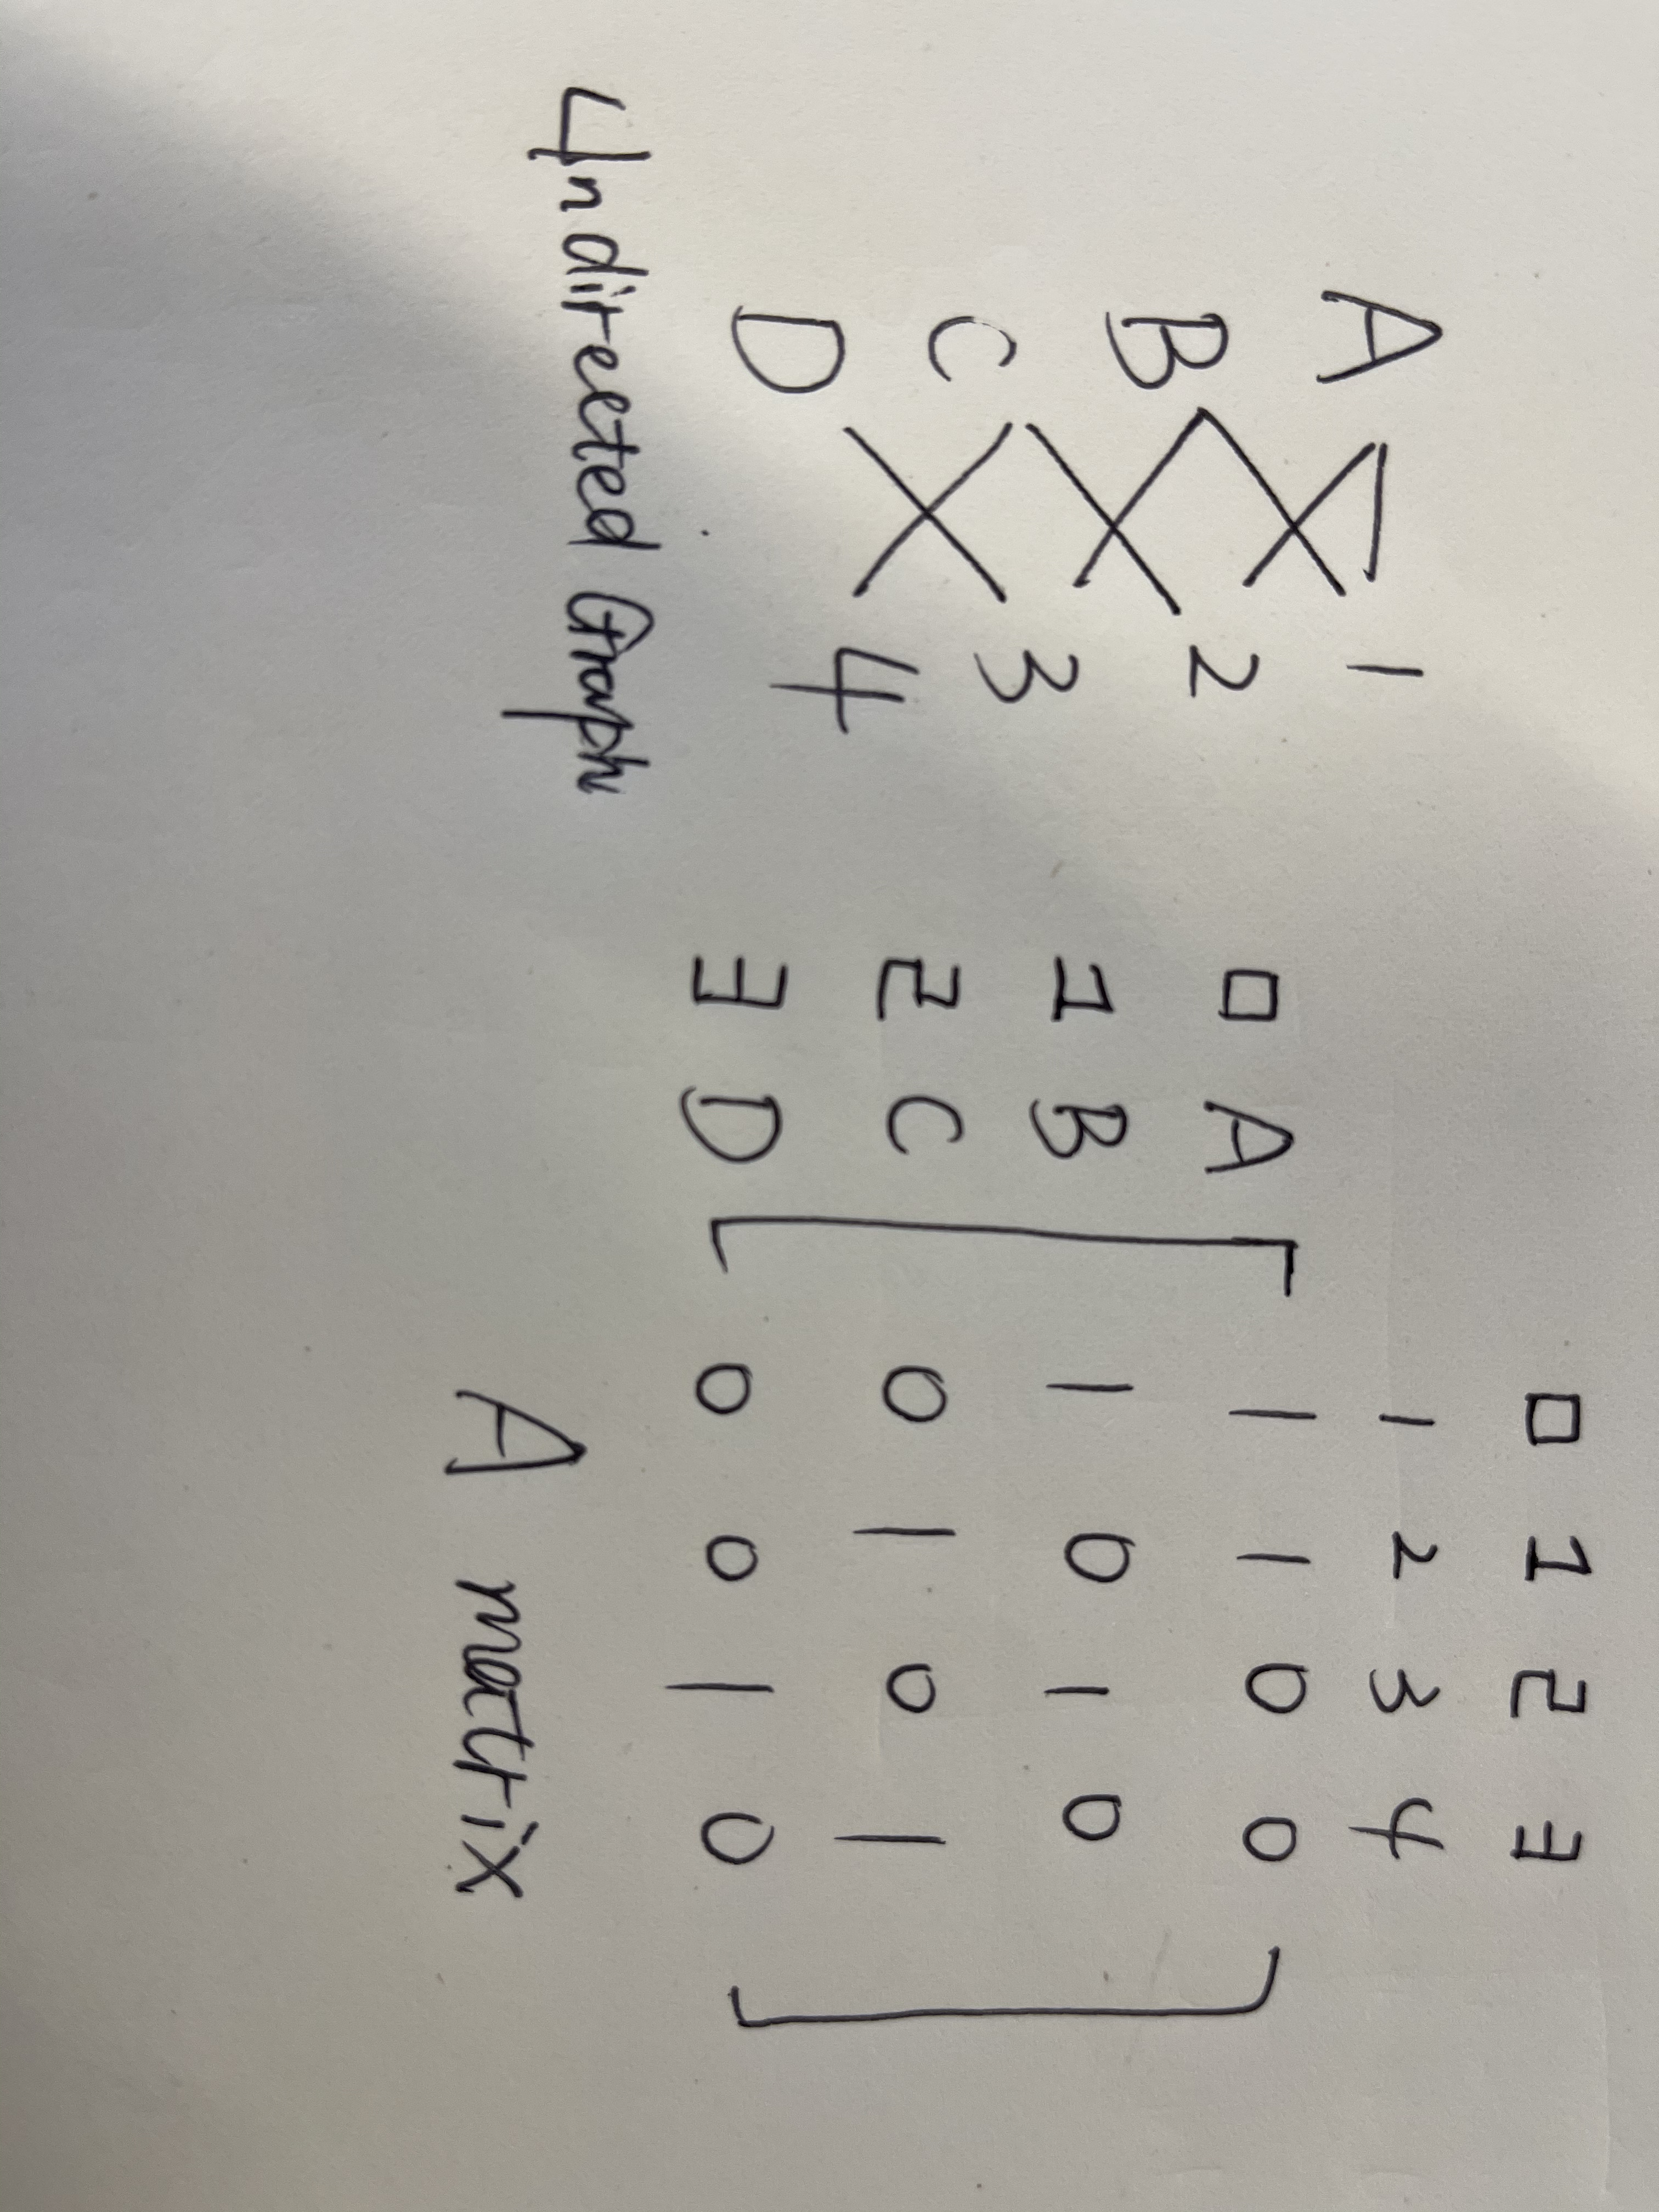 A 1
B 2
C 3
D 4
Undirected Graph
0 1 2 3
1 2 3 4
0 A 1 1 0 0
1 B 1 0 1 0
2 C 0 1 0 1
3 D 0 0 1 0
A matrix